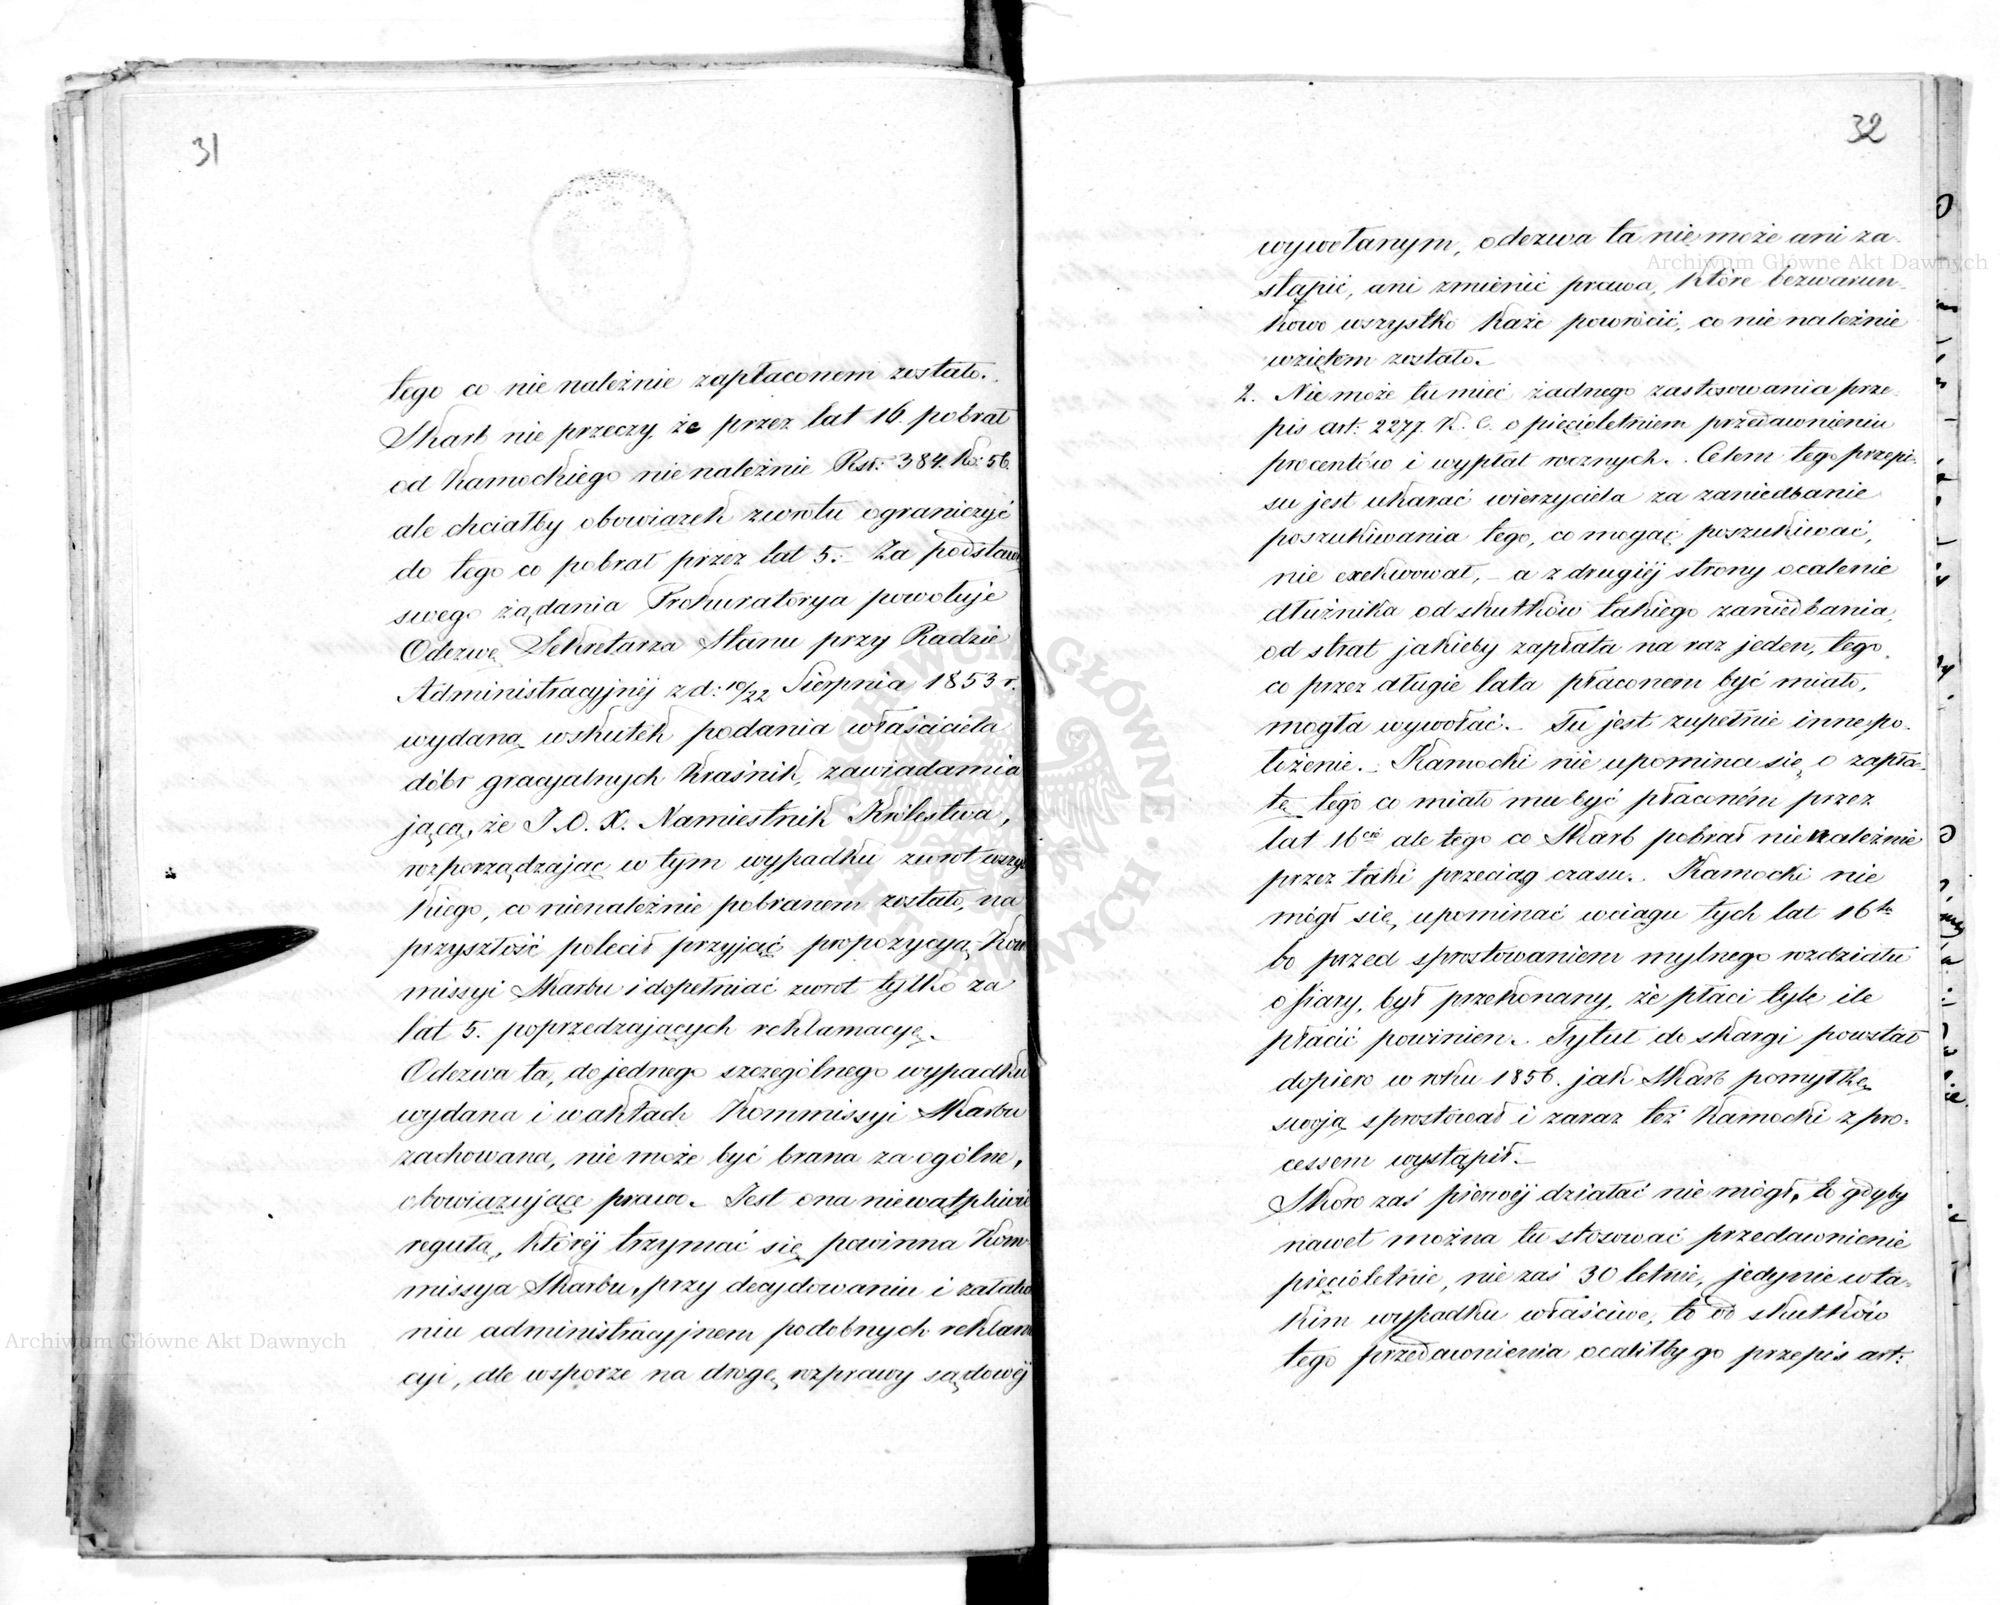 31
tego co nienależnie zapłaconem zostało.
Skarb nie przeczy, że przez lat 16. pobrał
od Kamockiego nienależnie Rsr: 384. ko: 56.
ale chciałby obowiązek zwrotu ograniczyć
do tego co pobrał przez lat 5. – Za podstawę
swego żądania Prokuratorya powołuje
Odezwę Sekretarza Stanu przy Radzie
Administracyjnéj z d: 10/22 Sierpnia 1853 r.
wydaną wskutek podania właściciela
dóbr gracyalnych Kraśnik, zawiadamia
jącą, że J. O. X. Namiestnik Królestwa,
rozporządzając w tym wypadku zwrot wszyst
kiego, co nienależnie pobranem zostało, na
przyszłość polecił przyjąć propozycyą Kom
missyi Skarbu i dopełniać zwrot tylko za
lat 5. poprzedzających reklamacyę.
Odezwa ta, do jednego szczególnego wypadku
wydana i w aktach Kommissyi Skarbu
zachowana, nie może być brana za ogólne,
obowiązujące prawo. Jest ona niewątpliwie
regułą, któréj trzymać się powinna Kom-
missya Skarbu, przy decydowaniu i załatwia
niu administracyjnem podobnych reklama
cyi, ale w sporze na drogę rozprawy sądowéj
32
wywołanym, odezwa ta nie może ani za-
stąpić, ani zmienić prawa, które bezwarun-
kowo wszystko każe powrócić, co nienależnie
wziętem zostało. –
2. Nie może tu mieć żadnego zastosowania prze-
pis art: 2277. K. C. o pięcioletniem przedawnieniu
procentów i wypłat rocznych. Celem tego przepi-
su jest ukarać wierzyciela za zaniedbanie
poszukiwania tego, co mogąc poszukiwać,
nie exekwował, – a z drugiéj strony ocalenie
dłużnika od skutków takiego zaniedbania,
od strat jakieby zapłata na raz jeden, tego
co przez długie lata płaconem być miało,
mogła wywołać. – Tu jest zupełnie inne po-
łożenie. – Kamocki nie upomina się o zapła-
tę tego co miało mu być płaconém przez
lat 16cie ale tego co Skarb pobrał nienależnie
przez taki przeciąg czasu. Kamocki nie
mógł się upominać w ciągu tych lat 16tu
bo przed sprostowaniem mylnego rozdziału
ofiary, był przekonany, że płaci tyle ile
płacić powinien. Tytuł do skargi powstał
dopiero w roku 1856. jak Skarb pomyłkę
swoją sprostował i zaraz téż Kamocki z pro-
cessem wystąpił. –
Skoro zaś pierwéj działać nie mógł, to gdyby
nawet można tu stosować przedawnienie
pięcioletnie, nie zaś 30 letnie, jedynie w ta-
kim wypadku właściwe, to od skutków
tego przedawnienia ocaliłby go przepis art:
Archiwum Główne Akt Dawnych
Archiwum Główne Akt Dawnych
ARCHIWUM GŁÓWNE AKT DAWNYCH